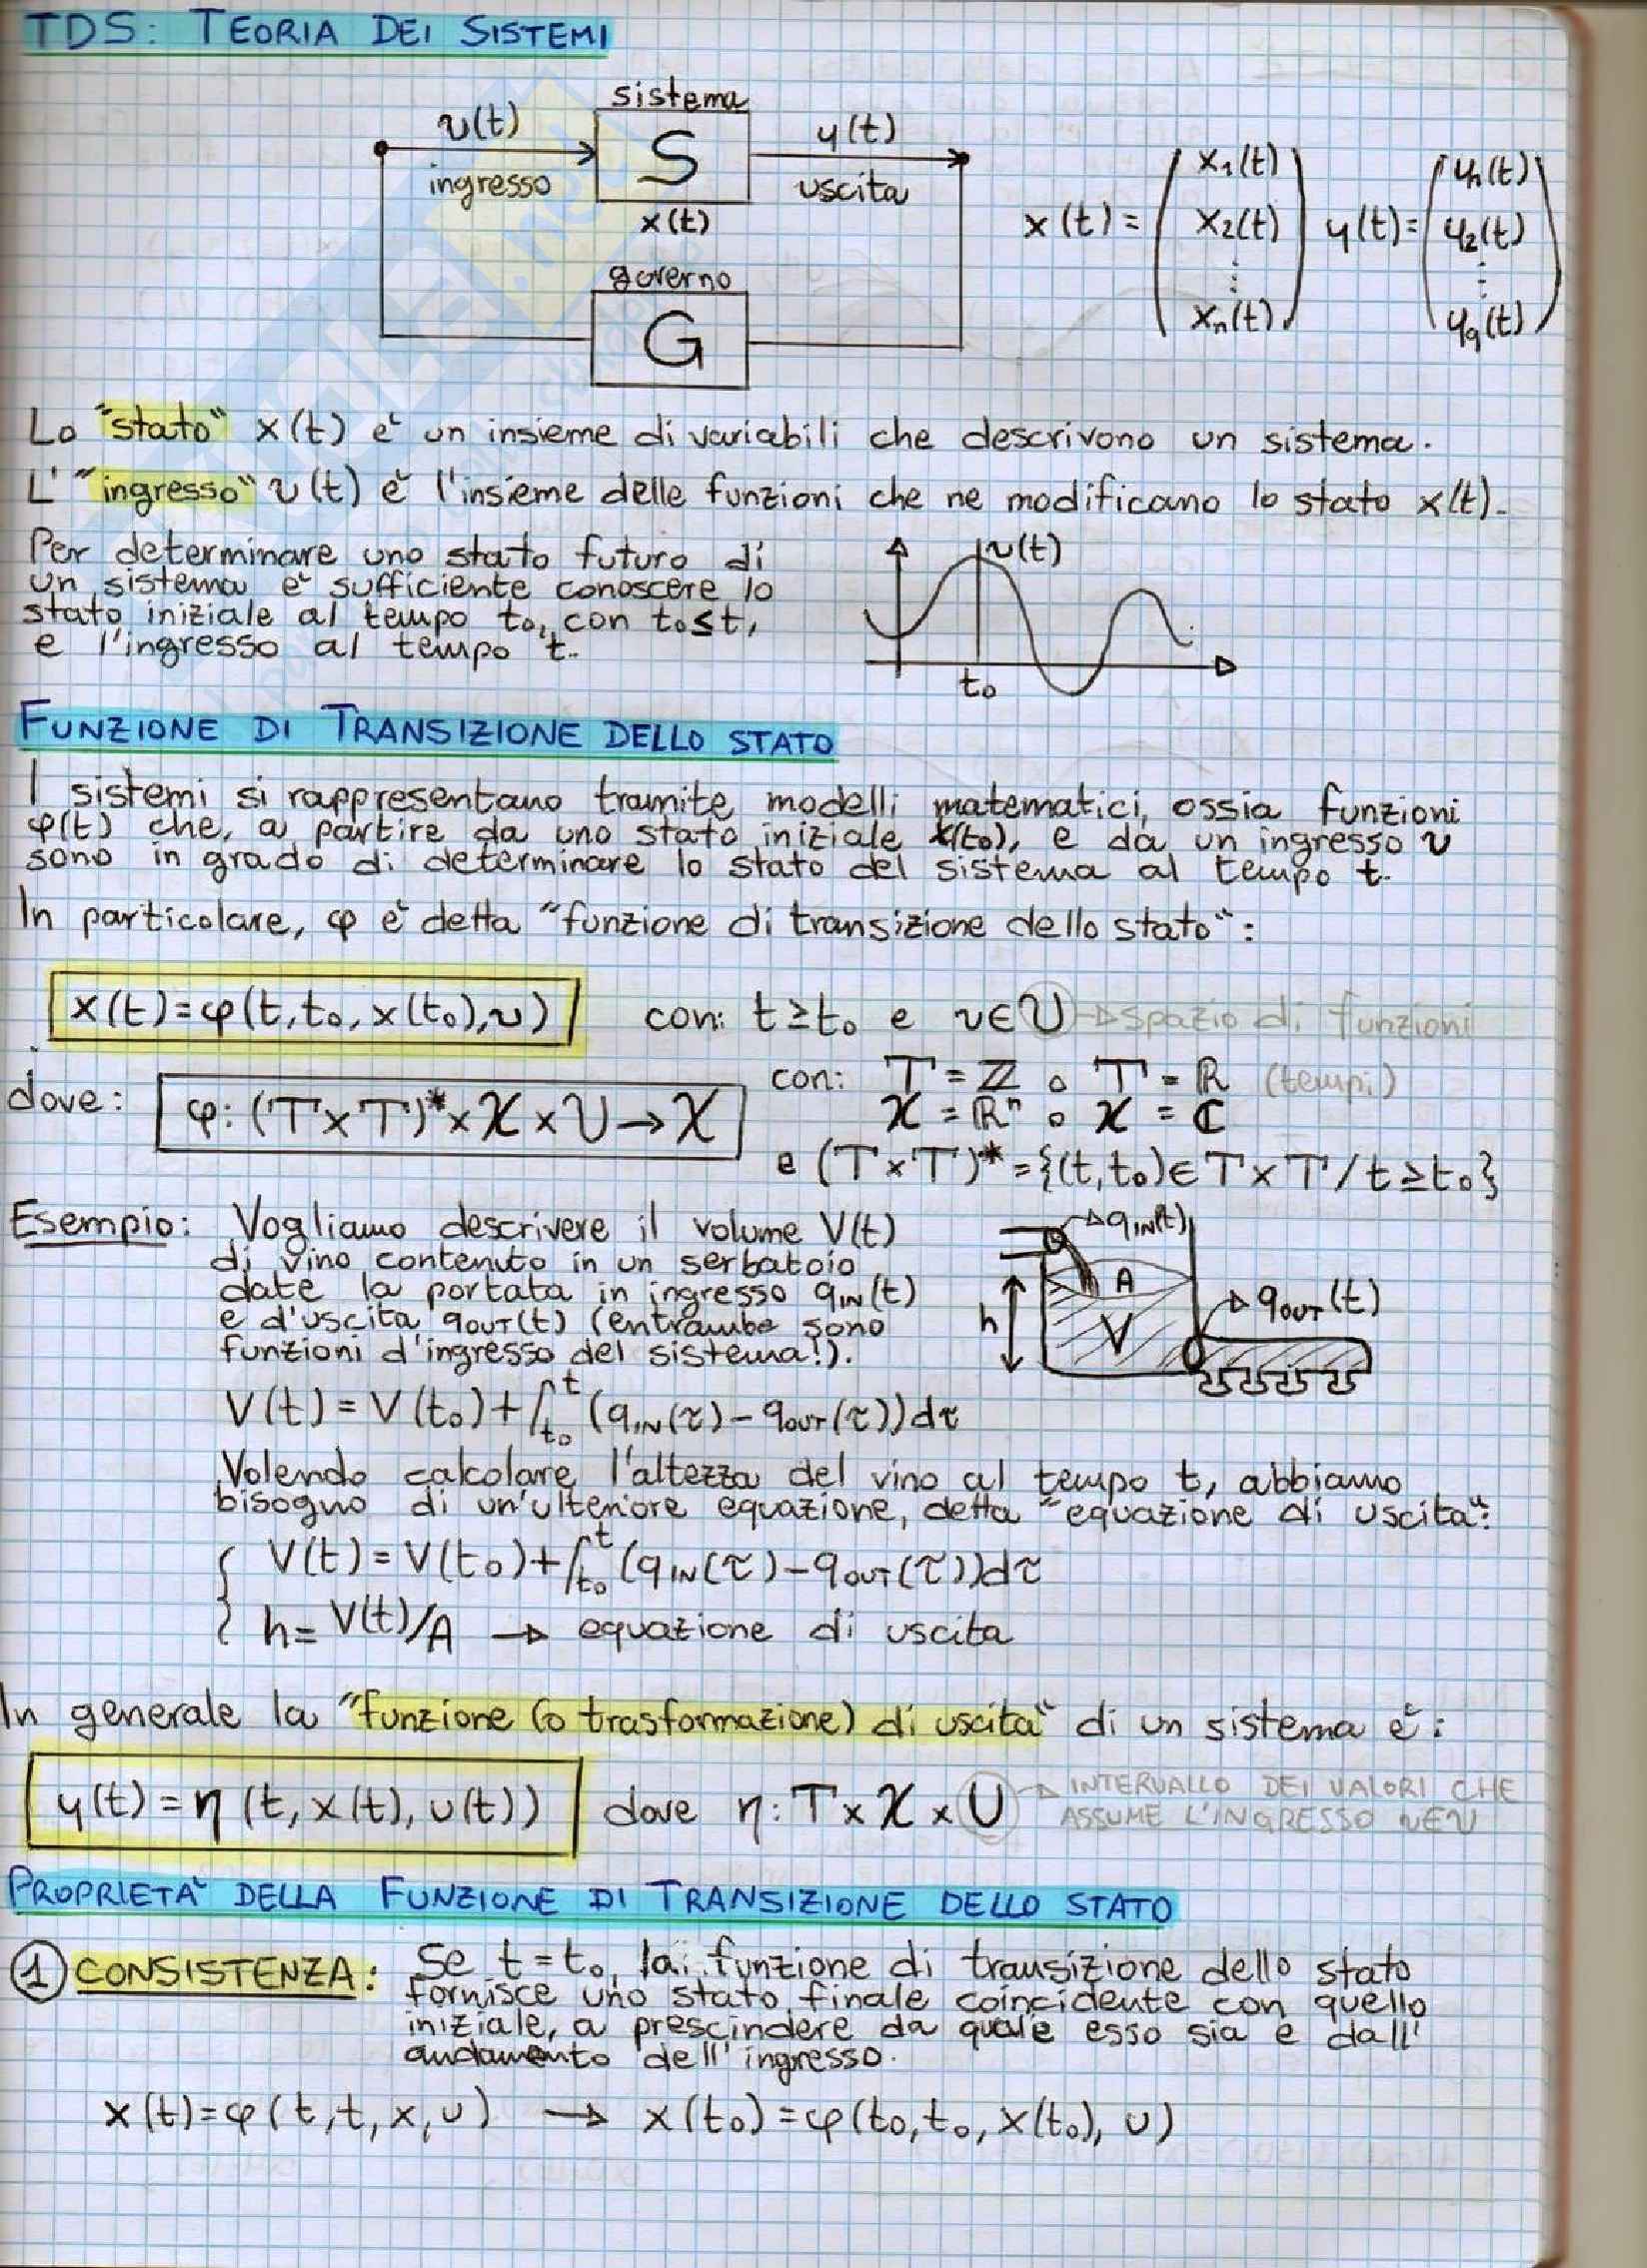 TDS: TEORIA DEI SISTEMI
sistema
u(t)
S
y(t)
ingresso
uscita
x(t)
governo
G
x(t) = (x₁(t) x₂(t) ⋮ xₙ(t)) y(t) = (y₁(t) y₂(t) ⋮ y_q(t))
Lo "stato" x(t) è un insieme di variabili che descrivono un sistema.
L'"ingresso" u(t) è l'insieme delle funzioni che ne modificano lo stato x(t).
Per determinare uno stato futuro di
un sistema è sufficiente conoscere lo
stato iniziale al tempo t₀, con t₀≤t,
e l'ingresso al tempo t.
u(t)
t₀
FUNZIONE DI TRANSIZIONE DELLO STATO
I sistemi si rappresentano tramite modelli matematici, ossia funzioni
φ(t) che, a partire da uno stato iniziale x(t₀), e da un ingresso u
sono in grado di determinare lo stato del sistema al tempo t.
In particolare, φ è detta "funzione di transizione dello stato":
x(t)=φ(t,t₀,x(t₀),u) con: t≥t₀ e u∈U → spazio di funzioni
dove: φ: (T×T)*×X×U→X
con: T=ℤ o T=ℝ (tempi)
X=ℝⁿ o X=ℂ
e (T×T)*={(t,t₀)∈T×T/t≥t₀}
Esempio: Vogliamo descrivere il volume V(t)
di vino contenuto in un serbatoio
date la portata in ingresso qIN(t)
e d'uscita qOUT(t) (entrambe sono
funzioni d'ingresso del sistema!).
qIN(t)
A
h
V
qOUT(t)
V(t)=V(t₀)+∫t₀^t (qIN(τ)-qOUT(τ))dτ
Volendo calcolare l'altezza del vino al tempo t, abbiamo
bisogno di un'ulteriore equazione, detta "equazione di uscita":
{ V(t)=V(t₀)+∫t₀^t (qIN(τ)-qOUT(τ))dτ
h=V(t)/A → equazione di uscita
In generale la "funzione (o trasformazione) di uscita" di un sistema è:
y(t)=η(t,x(t),u(t)) dove η: T×X×U → INTERVALLO DEI VALORI CHE
ASSUME L'INGRESSO u∈U
PROPRIETA' DELLA FUNZIONE DI TRANSIZIONE DELLO STATO
① CONSISTENZA: Se t=t₀, la funzione di transizione dello stato
fornisce uno stato finale coincidente con quello
iniziale, a prescindere da quale esso sia e dall'
andamento dell'ingresso.
x(t)=φ(t,t,x,u) → x(t₀)=φ(t₀,t₀,x(t₀),u)